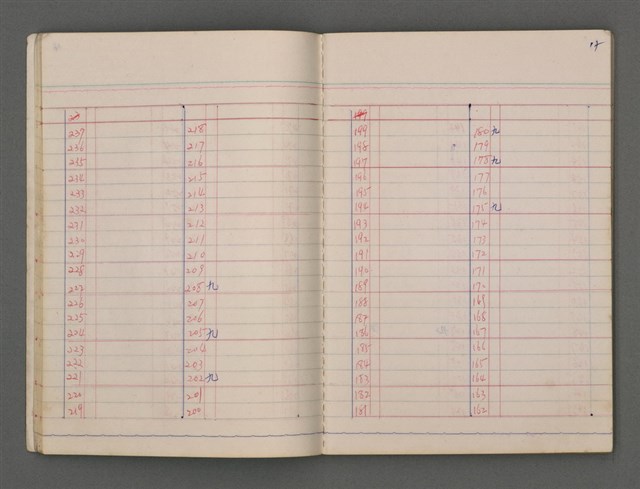 237
236
235
234
233
232
231
230
229
228
227
226
225
224
223
222
221
220
219
218
217
216
215
214
213
212
211
210
209
208 九
207
206
205 九
204
203
202 九
201
200
17
199
198
197
196
195
194
193
192
191
190
189
188
187
186
185
184
183
182
181
180 九
179
178 九
177
176
175 九
174
173
172
171
170
169
168
167
166
165
164
163
162